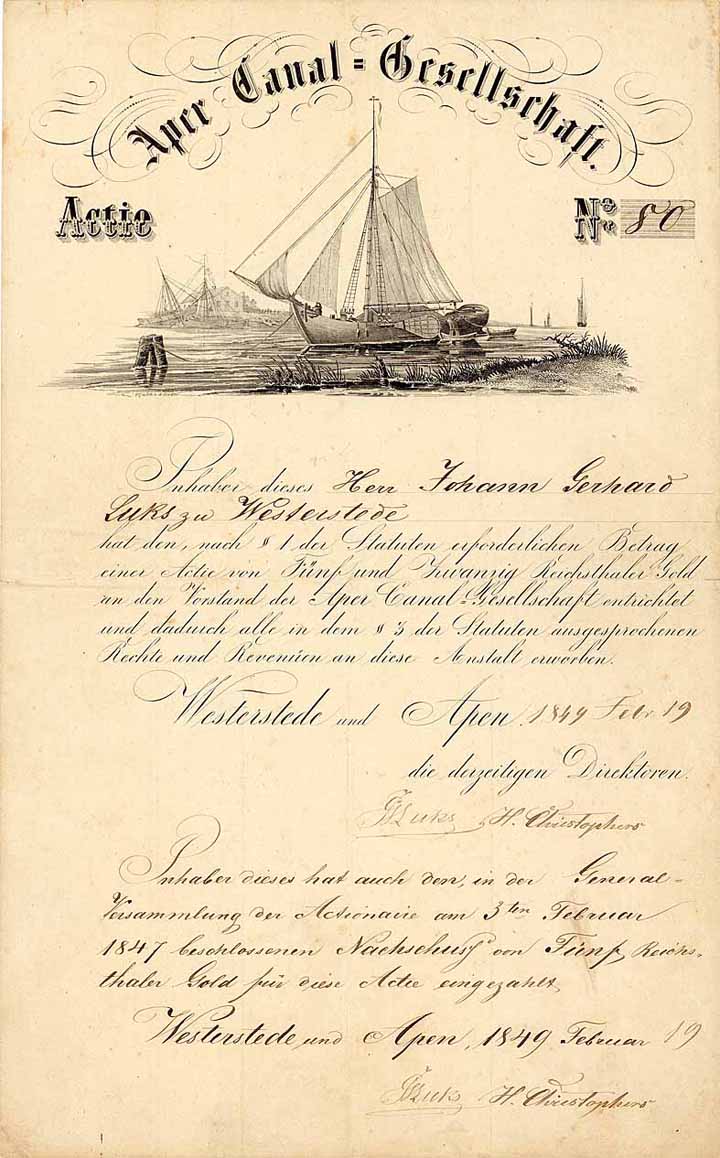 Aper Canal=Gesellschaft.
Actie
No 80
Inhaber dieses Herr Johann Gerhard
Luks zu Westerstede
hat den, nach § 1 der Statuten erforderlichen Betrag
einer Actie von Fünf und Zwanzig Reichsthaler Gold
an den Vorstand der Aper Canal=Gesellschaft entrichtet
und dadurch alle in dem § 3 der Statuten ausgesprochenen
Rechte und Revenüen an diese Anstalt erworben.
Westerstede und Apen. 1849 Febr 19
die derzeitigen Direktoren.
Luks H. Christophers
Inhaber dieses hat auch den, in der General-
Versammlung der Actionaire am 3ten Februar
1847 beschlossenen Nachschuss von Fünf Reichs-
thaler Gold für diese Actie eingezahlt
Westerstede und Apen, 1849 Februar 19
Luks H. Christophers